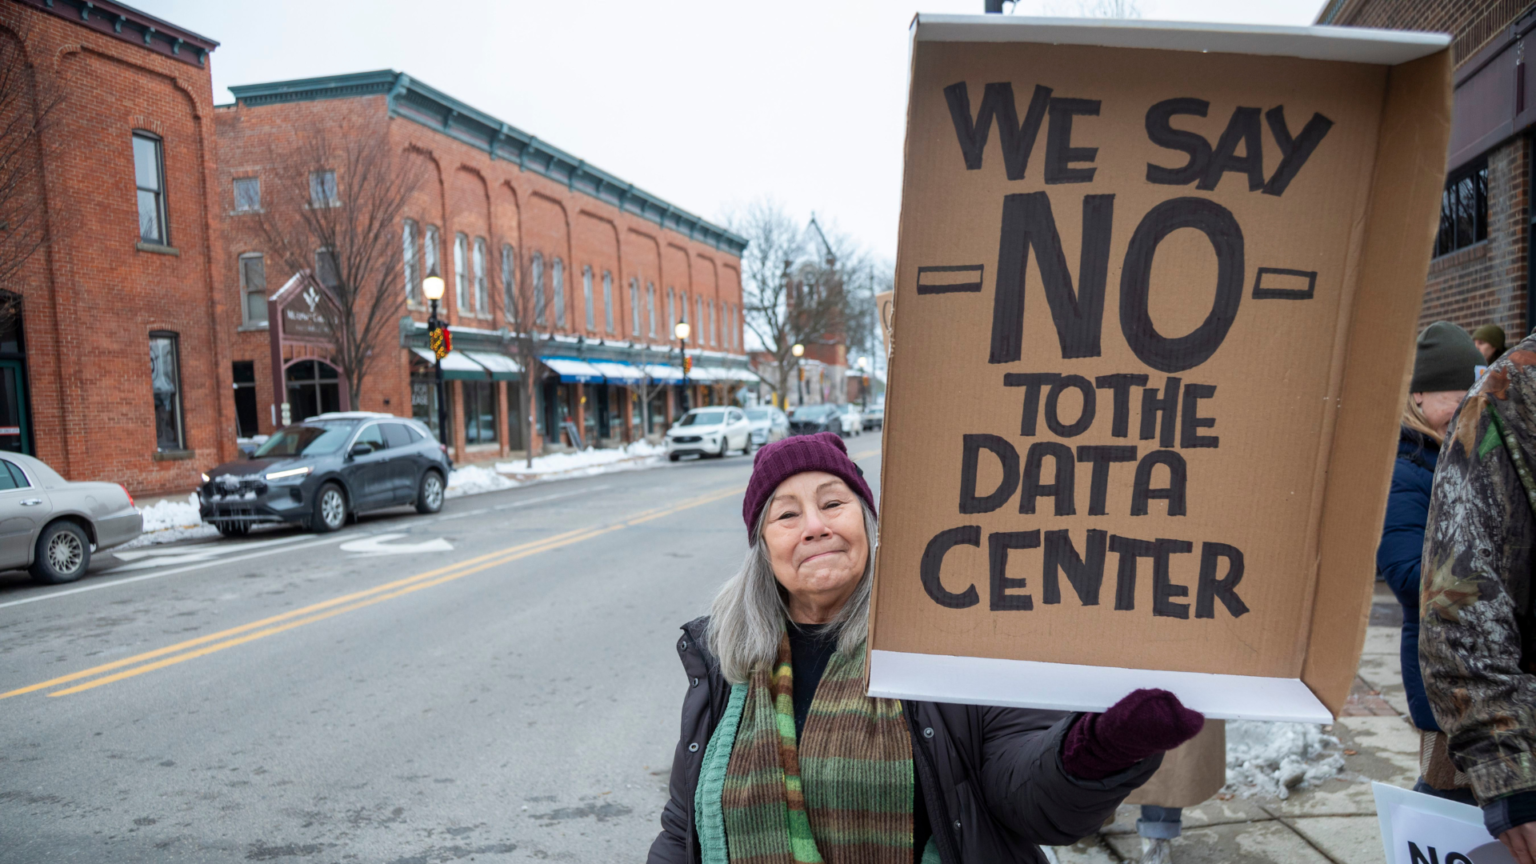 WE SAY
- NO -
TO THE
DATA
CENTER
NO